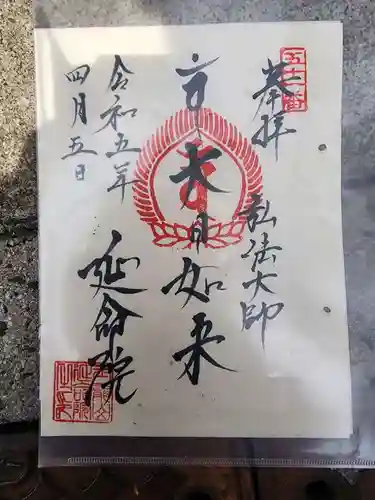 五十一番
奉拝
弘法大師
大日如来
延命院
令和五年
四月五日